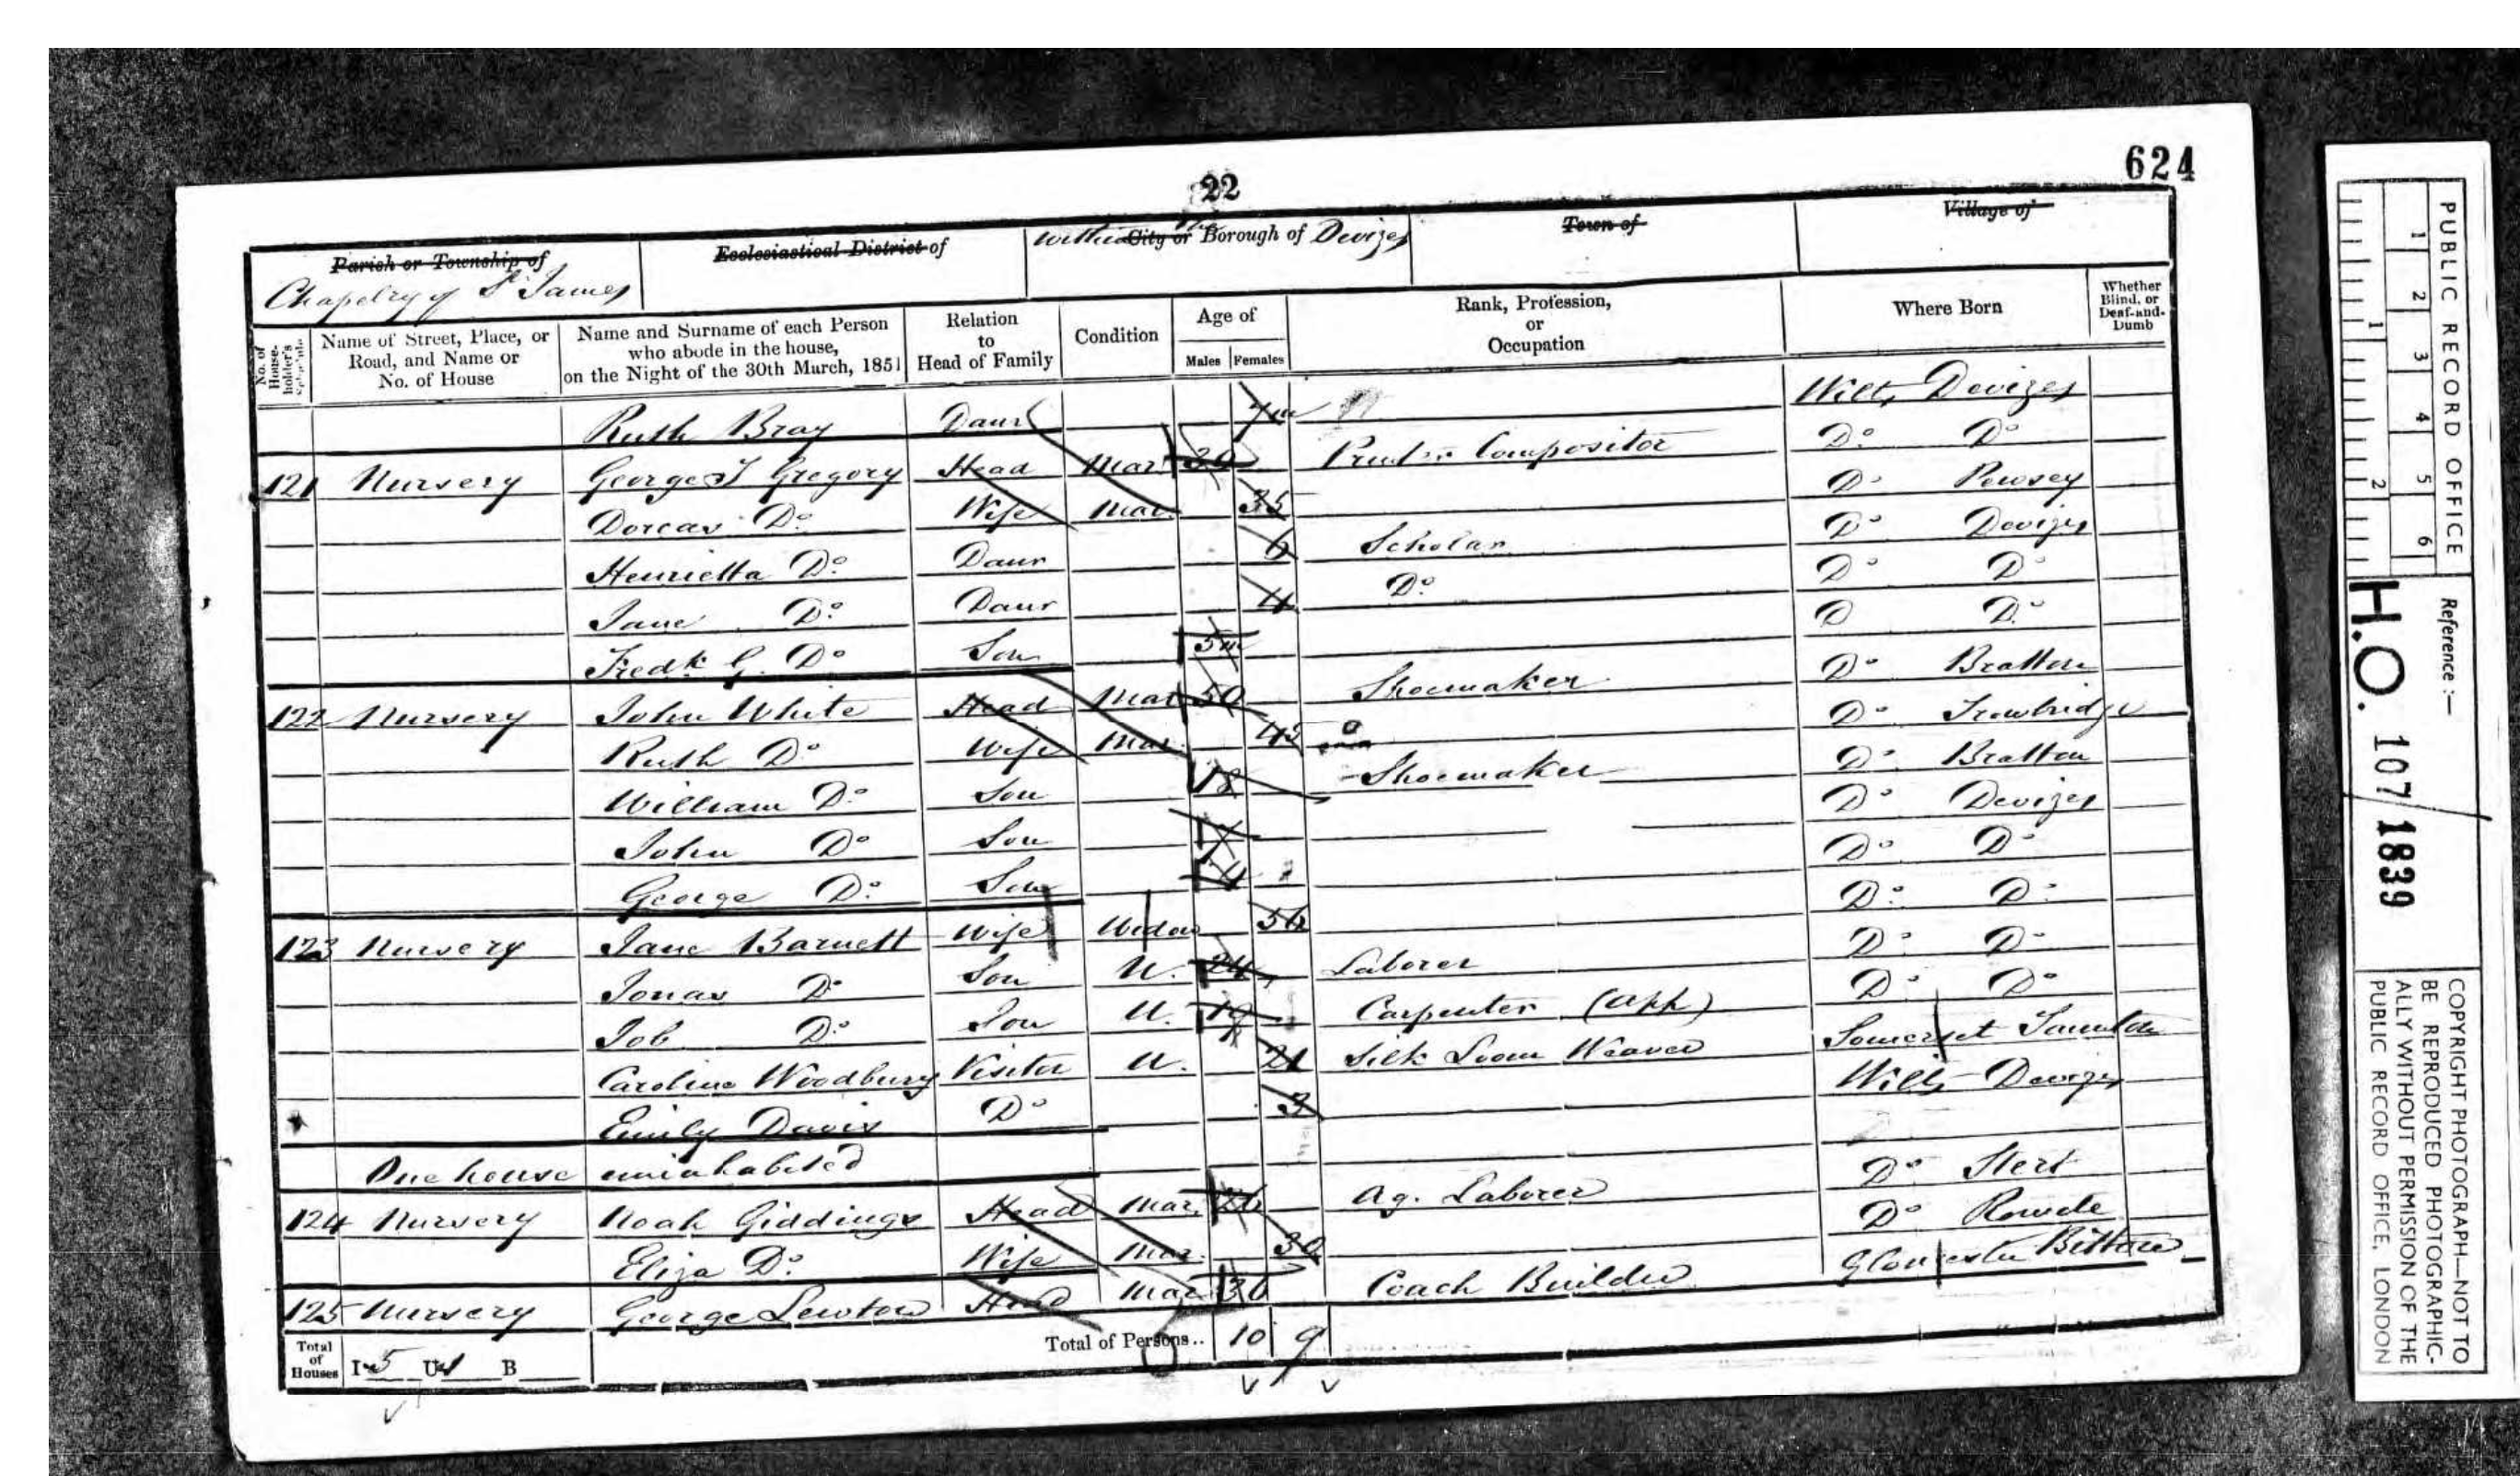 624
22
Parish or Township of
Chapelry of St James
Ecclesiastical District of
within the City or Borough of Devizes
Town of
Village of
No. of House-holder's Schedule
Name of Street, Place, or Road, and Name or No. of House
Name and Surname of each Person who abode in the house, on the Night of the 30th March, 1851
Relation to Head of Family
Condition
Age of
Males Females
Rank, Profession, or Occupation
Where Born
Whether Blind, or Deaf-and-Dumb
Ruth Bray Daur 7m Wilts Devizes
121 Nursery George J Gregory Head Mar Printer Compositor Do Do
Dorcas Do Wife Mar 35 Do Pewsey
Henrietta Do Daur 6 Scholar Do Devizes
Jane Do Daur 4 Do Do Do
Fredk G. Do Son 5m D Do
122 Nursery John White Head Mar 50 Shoemaker Do Bratton
Ruth Do Wife Mar Do Trowbridge
William Do Son 18 Shoemaker Do Bratton
John Do Son Do Devizes
George Do Son 14 Do Do
123 Nursery Jane Barnett Wife Widow Do Do
Jonas Do Son U. 24 Laborer Do Do
Job Do Son U. 19 Carpenter (App) Do Do
Caroline Woodbury Visitor U. 21 Silk Loom Weaver Somerset Taunton
Emily Davis Do 3 Wilts Devizes
One house uninhabited
124 Nursery Noah Giddings Head Mar 26 Ag. Laborer Do Stert
Eliza Do Wife Mar 30 Do Rowde
125 Nursery George Lewton Head Mar 36 Coach Builder Gloucester Bitton
Total of Houses I 5 U 1 B
Total of Persons.. 10 9
PUBLIC RECORD OFFICE
1 2 3 4 5 6
1 2
Reference :—
H.O. 107/1839
COPYRIGHT PHOTOGRAPH—NOT TO BE REPRODUCED PHOTOGRAPHIC-ALLY WITHOUT PERMISSION OF THE PUBLIC RECORD OFFICE, LONDON